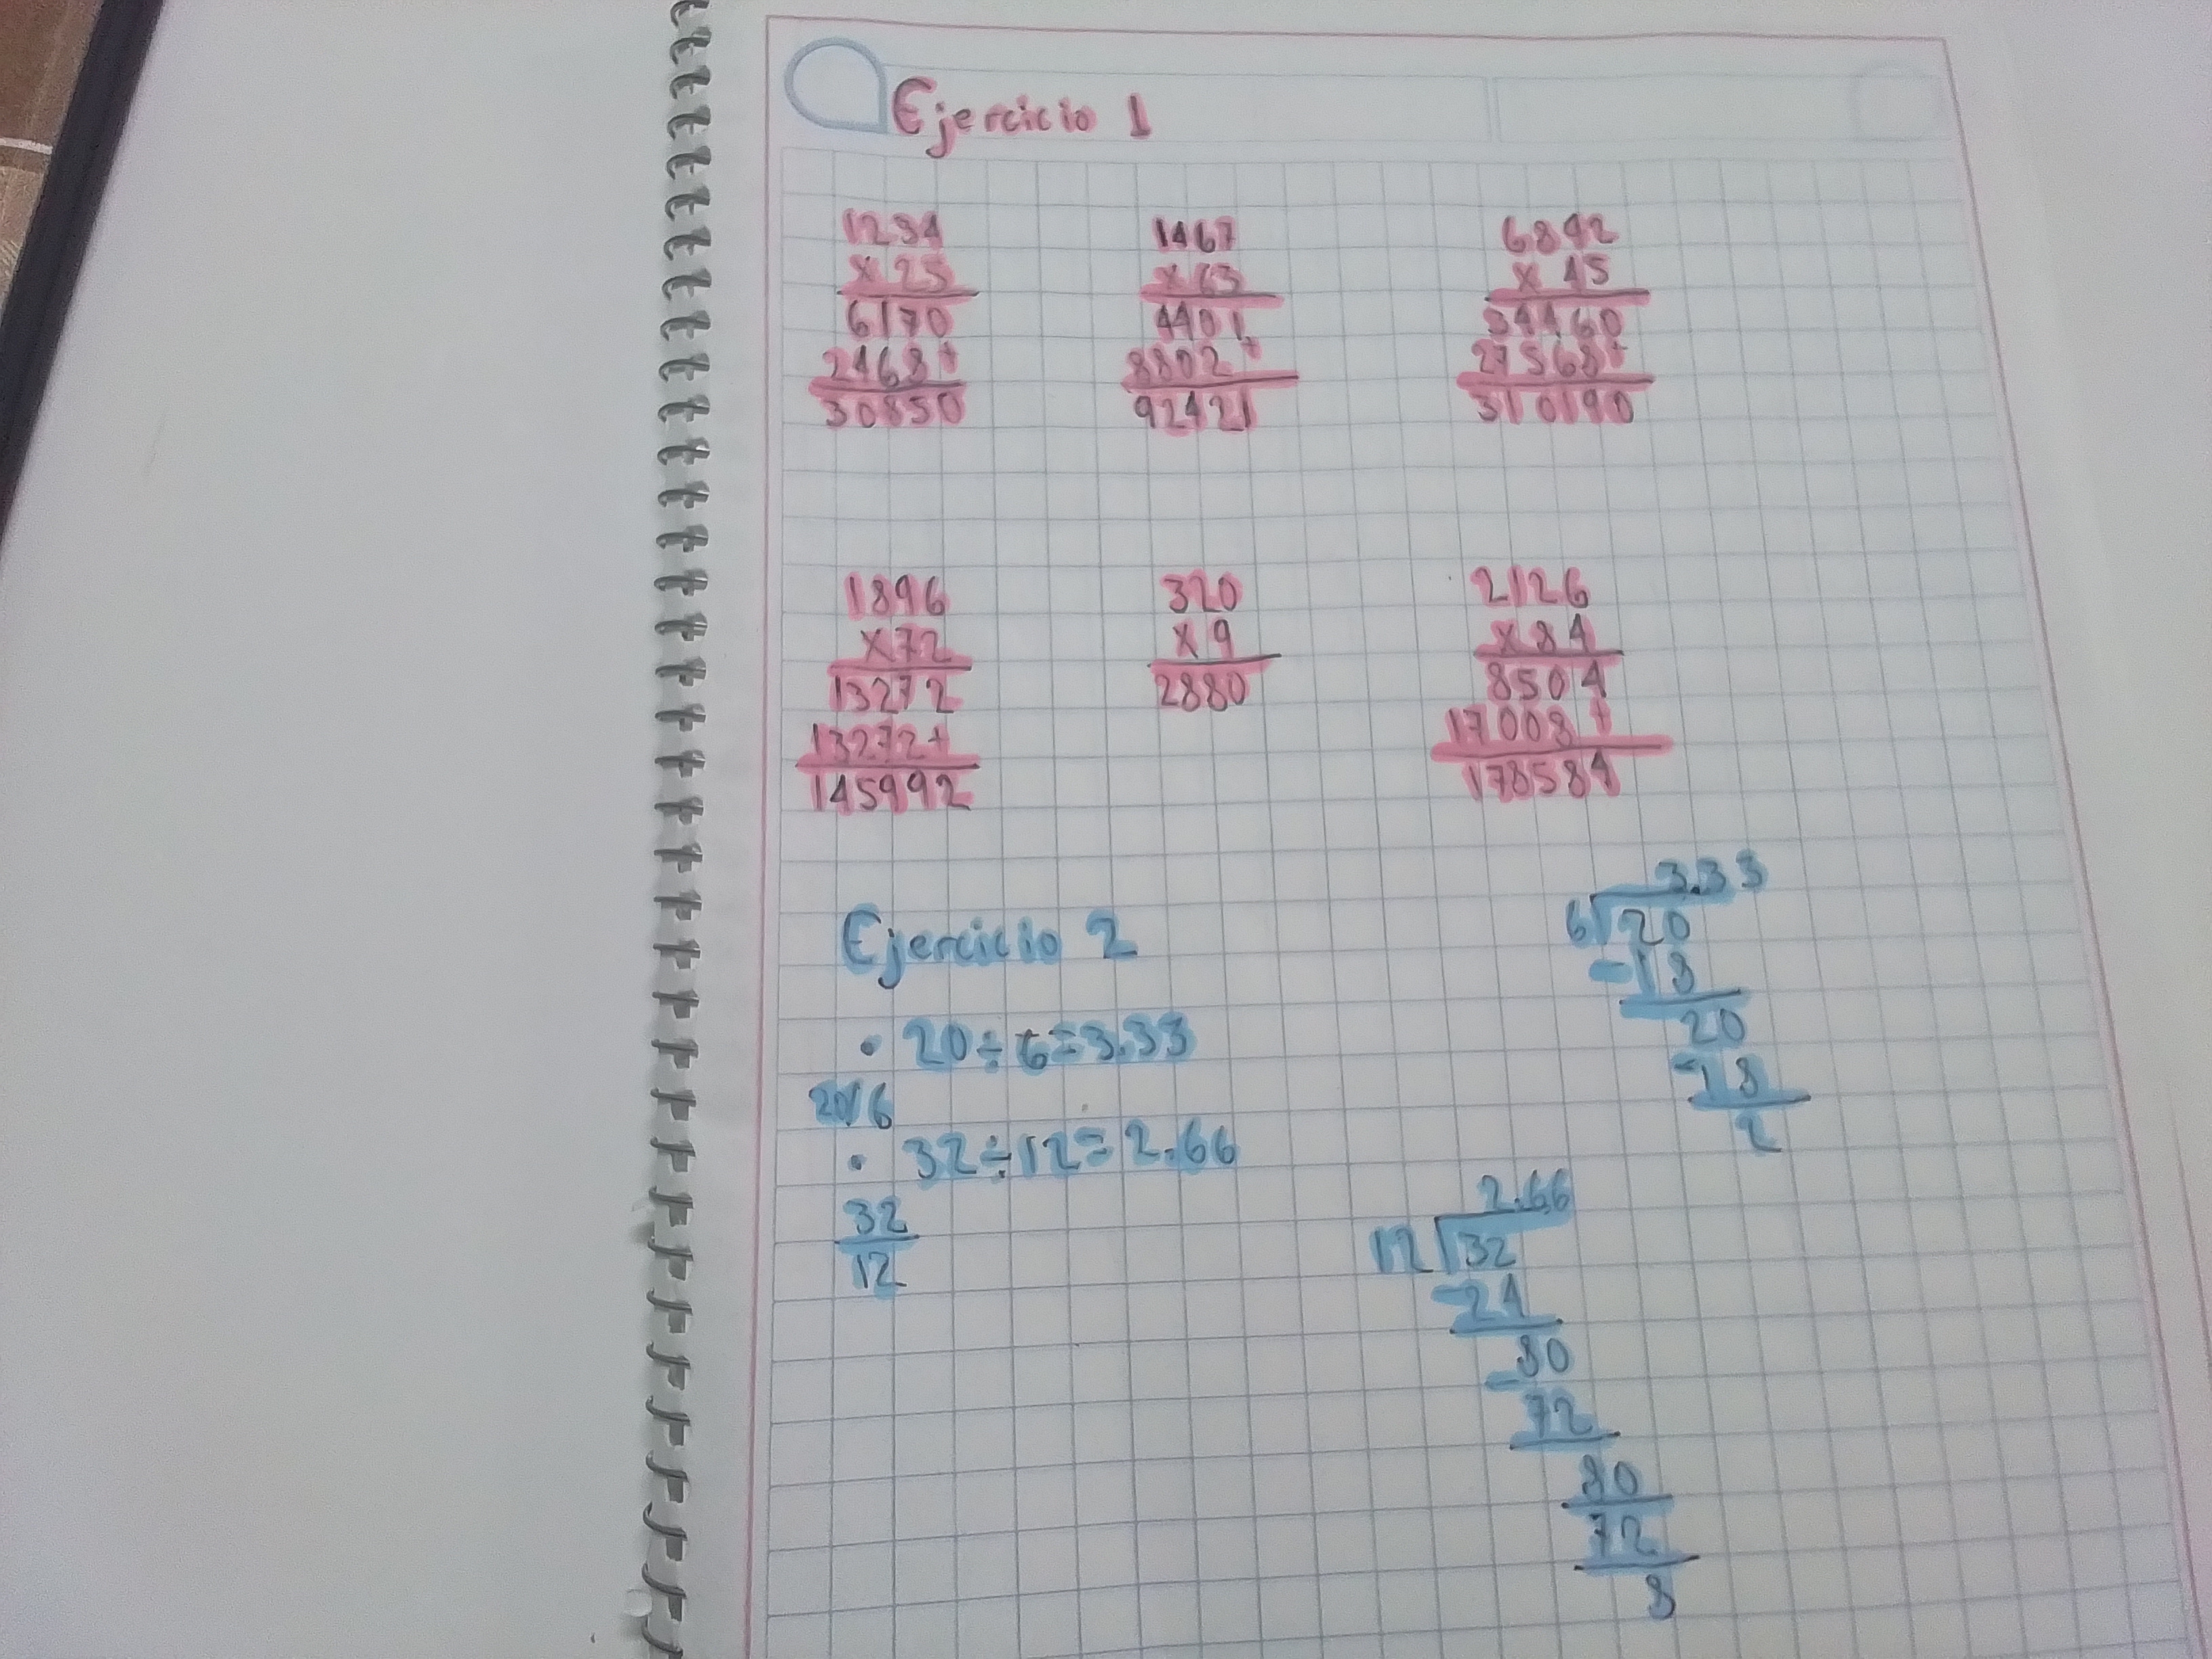 Ejercicio 1
1234
x 25
6170
2468+
30850
1467
x 63
4401
8802+
92421
6892
x 45
34460
27568+
310140
1896
x72
13272
13272+
145992
320
x 9
2880
2126
x 84
8504
17008+
178584
Ejercicio 2
• 20÷6=3.33
20/6
• 32÷12=2.66
32
12
3.33
6 20
-18
20
-18
2
2.66
12 32
-24
80
-72
80
72
8